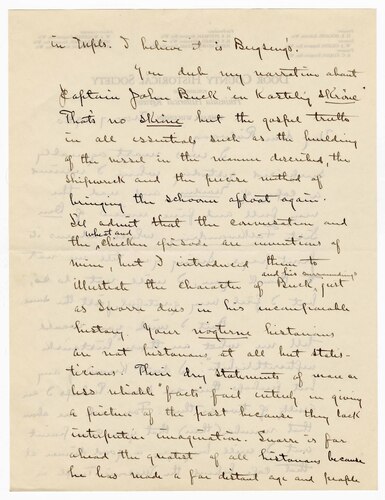 in Mpls. I believe it is Beyseng's.
You dub my narration about
Captain John Buck "en kostelig skrøne"
That's no skrine but the gospel truth
in all essentials such as the building
of the vessel in the manner described, the
shipwreck and the precise method of
bringing the schooner afloat again.
I'll admit that the conversation and
the wheat and chicken episode are inventions of
mine, but I introduced them to
illustrate the character of Buck, and his surroundings just
as Snorre does in his incomparable
history. Your nøgterne historians
are not historians at all but statis-
ticians. Their dry statements of more or
less reliable "facts" fail entirely in giving
a picture of the past because they lack
interpretive imagination. Snorre is far
ahead the greatest of all historians because
he has made a far distant age and people